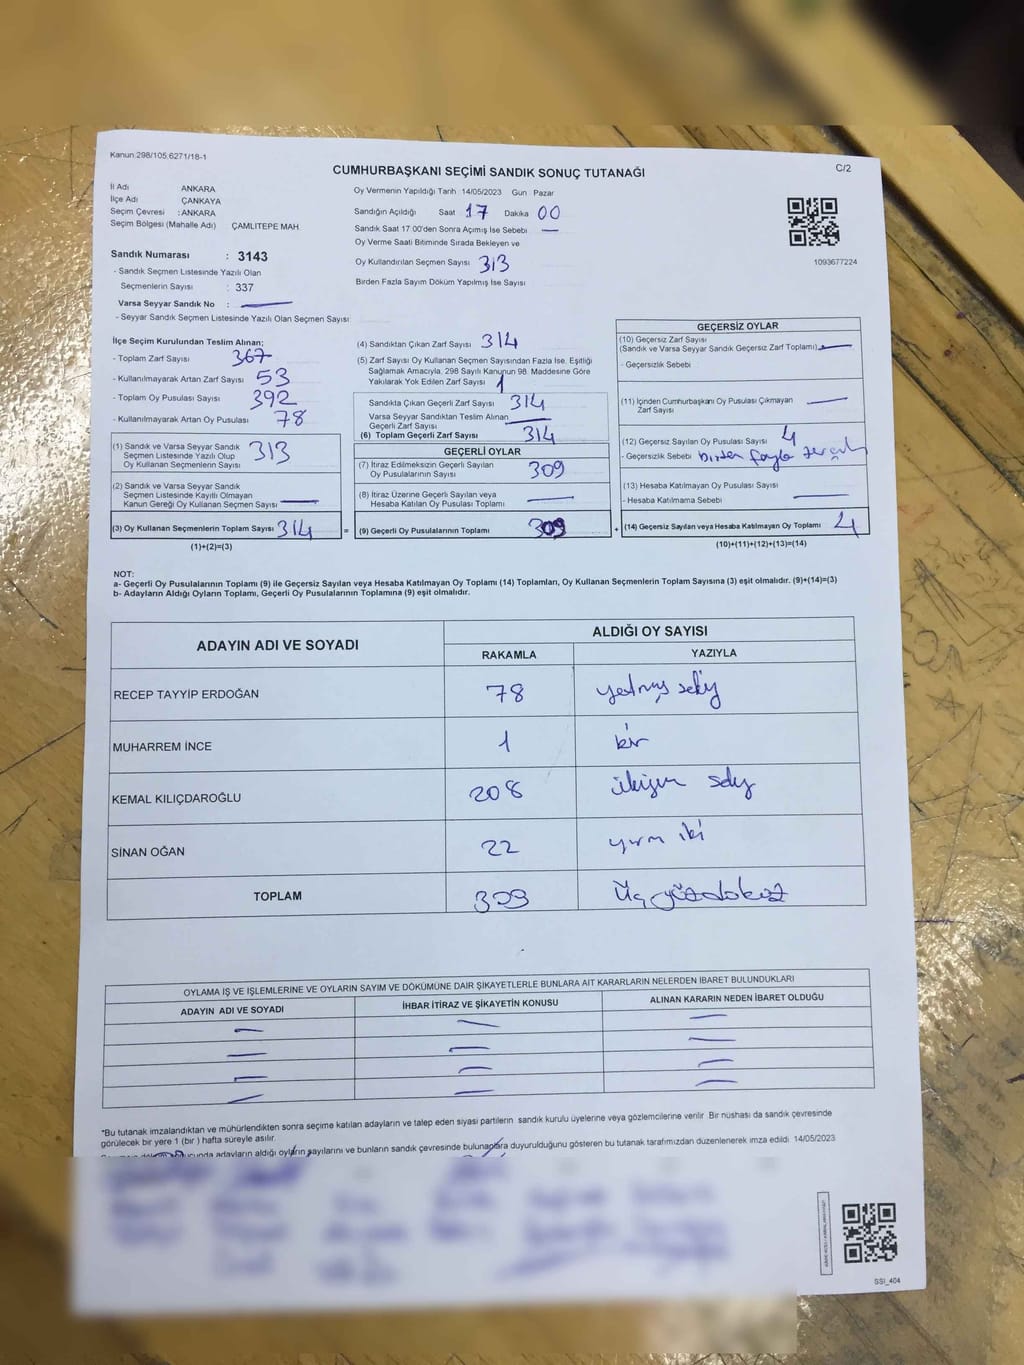 Kanun:298/105,6271/18-1
C/2
CUMHURBAŞKANI SEÇİMİ SANDIK SONUÇ TUTANAĞI
İl Adı ANKARA
İlçe Adı ÇANKAYA
Seçim Çevresi : ANKARA
Seçim Bölgesi (Mahalle Adı) ÇAMLITEPE MAH
Sandık Numarası : 3143
- Sandık Seçmen Listesinde Yazılı Olan
Seçmenlerin Sayısı : 337
Varsa Seyyar Sandık No : —
- Seyyar Sandık Seçmen Listesinde Yazılı Olan Seçmen Sayısı
Oy Vermenin Yapıldığı Tarih 14/05/2023 Gün Pazar
Sandığın Açıldığı Saat 17 Dakika 00
Sandık Saat 17 00'den Sonra Açımış İse Sebebi —
Oy Verme Saati Bitiminde Sırada Bekleyen ve
Oy Kullandırılan Seçmen Sayısı 313
Birden Fazla Sayım Döküm Yapılmış İse Sayısı
1093677224
İlçe Seçim Kurulundan Teslim Alınan;
- Toplam Zarf Sayısı 367
- Kullanılmayarak Artan Zarf Sayısı 53
- Toplam Oy Pusulası Sayısı 392
- Kullanılmayarak Artan Oy Pusulası 78
(1) Sandık ve Varsa Seyyar Sandık
Seçmen Listesinde Yazılı Olup
Oy Kullanan Seçmenlerin Sayısı 313
(2) Sandık ve Varsa Seyyar Sandık
Seçmen Listesinde Kayıtlı Olmayan
Kanun Gereği Oy Kullanan Seçmen Sayısı —
(3) Oy Kullanan Seçmenlerin Toplam Sayısı 314
(1)+(2)=(3)
(4) Sandıktan Çıkan Zarf Sayısı 314
(5) Zarf Sayısı Oy Kullanan Seçmen Sayısından Fazla İse, Eşitliği
Sağlamak Amacıyla, 298 Sayılı Kanunun 98. Maddesine Göre
Yakılarak Yok Edilen Zarf Sayısı 1
Sandıkta Çıkan Geçerli Zarf Sayısı 314
Varsa Seyyar Sandıktan Teslim Alınan
Geçerli Zarf Sayısı —
(6) Toplam Geçerli Zarf Sayısı 314
GEÇERLİ OYLAR
(7) İtiraz Edilmeksizin Geçerli Sayılan
Oy Pusulalarının Sayısı 309
(8) İtiraz Üzerine Geçerli Sayılan veya
Hesaba Katılan Oy Pusulası Toplamı —
= (9) Geçerli Oy Pusulalarının Toplamı 309
GEÇERSİZ OYLAR
(10) Geçersiz Zarf Sayısı
(Sandık ve Varsa Seyyar Sandık Geçersiz Zarf Toplamı) —
- Geçersizlik Sebebi
(11) İçinden Cumhurbaşkanı Oy Pusulası Çıkmayan
Zarf Sayısı —
(12) Geçersiz Sayılan Oy Pusulası Sayısı 4
- Geçersizlik Sebebi birden fazla
(13) Hesaba Katılmayan Oy Pusulası Sayısı
- Hesaba Katılmama Sebebi —
+ (14) Geçersiz Sayılan veya Hesaba Katılmayan Oy Toplamı 4
(10)+(11)+(12)+(13)=(14)
NOT:
a- Geçerli Oy Pusulalarının Toplamı (9) ile Geçersiz Sayılan veya Hesaba Katılmayan Oy Toplamı (14) Toplamları, Oy Kullanan Seçmenlerin Toplam Sayısına (3) eşit olmalıdır. (9)+(14)=(3)
b- Adayların Aldığı Oyların Toplamı, Geçerli Oy Pusulalarının Toplamına (9) eşit olmalıdır.
ADAYIN ADI VE SOYADI ALDIĞI OY SAYISI
RAKAMLA YAZIYLA
RECEP TAYYİP ERDOĞAN 78 yetmiş sekiz
MUHARREM İNCE 1 bir
KEMAL KILIÇDAROĞLU 208 ikiyüz sekiz
SİNAN OĞAN 22 yirmi iki
TOPLAM 309 Üç yüz dokuz
OYLAMA İŞ VE İŞLEMLERİNE VE OYLARIN SAYIM VE DÖKÜMÜNE DAİR ŞİKAYETLERLE BUNLARA AİT KARARLARIN NELERDEN İBARET BULUNDUKLARI
ADAYIN ADI VE SOYADI İHBAR İTİRAZ VE ŞİKAYETİN KONUSU ALINAN KARARIN NEDEN İBARET OLDUĞU
— — —
— — —
— — —
— — —
*Bu tutanak imzalandıktan ve mühürlendikten sonra seçime katılan adayların ve talep eden siyasi partilerin sandık kurulu üyelerine veya gözlemcilerine verilir. Bir nüshası da sandık çevresinde
görülecek bir yere 1 (bir) hafta süreyle asılır.
adayların aldığı oyların sayılarını ve bunların sandık çevresinde bulunanlara duyurulduğunu gösteren bu tutanak tarafımızdan düzenlenerek imza edildi 14/05/2023
SSI_404